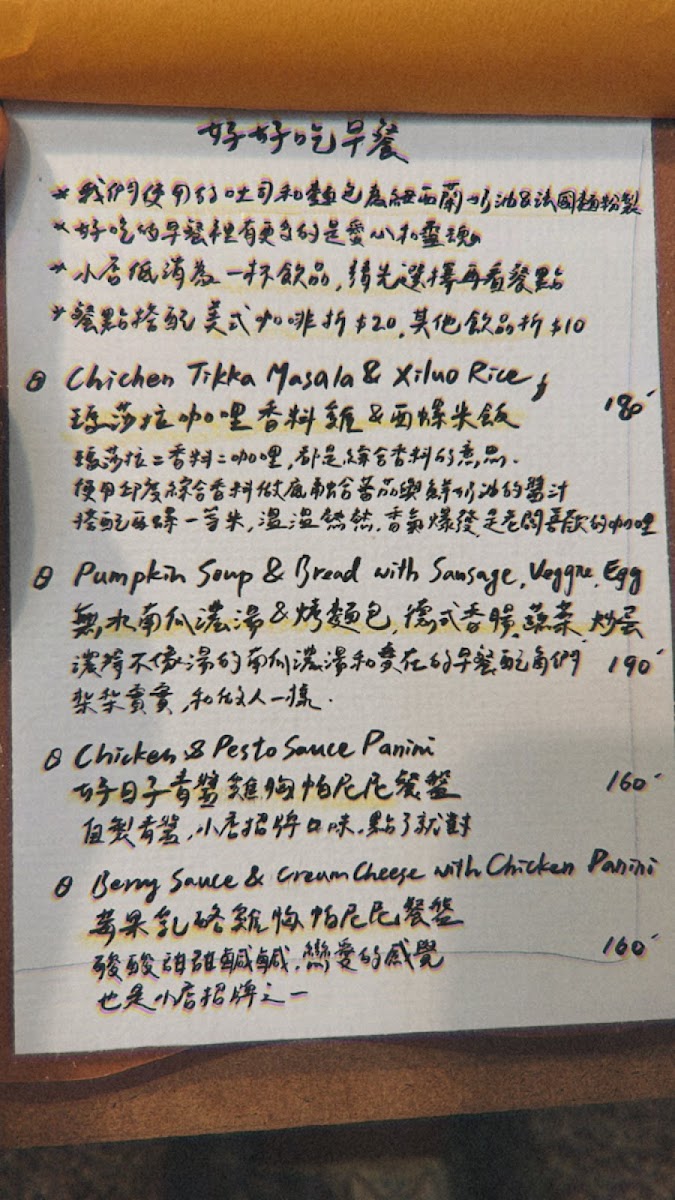 好好吃早餐
* 我們使用的吐司和麵包為紐西蘭奶油&法國麵粉製
* 好吃的早餐裡有更多的是愛心和靈魂。
* 小店低消為一杯飲品,請先選擇再看餐點
* 餐點搭配美式咖啡折$20,其他飲品折$10
Chicken Tikka Masala & Xiluo Rice
瑪莎拉咖哩香料雞&西螺米飯 180
瑪莎拉=香料=咖哩,都是綜合香料的意思.
使用印度綜合香料做底融合番茄與鮮奶油的醬汁
搭配西螺一等米,溫溫熱熱,香氣爆發,是老闆喜歡的咖哩
Pumpkin Soup & Bread with Sausage, Veggie, Egg
無水南瓜濃湯&烤麵包,德式香腸,蔬菜,炒蛋
濃得不像湯的南瓜濃湯和實在的早餐配角們 190
紮紮實實,和做人一樣.
Chicken & Pesto Sauce Panini
好日子青醬雞胸帕尼尼餐盤 160
自製青醬,小店招牌口味.點了就對
Berry Sauce & Cream Cheese with Chicken Panini
莓果乳酪雞胸帕尼尼餐盤
酸酸甜甜鹹鹹.戀愛的感覺 160
也是小店招牌之一